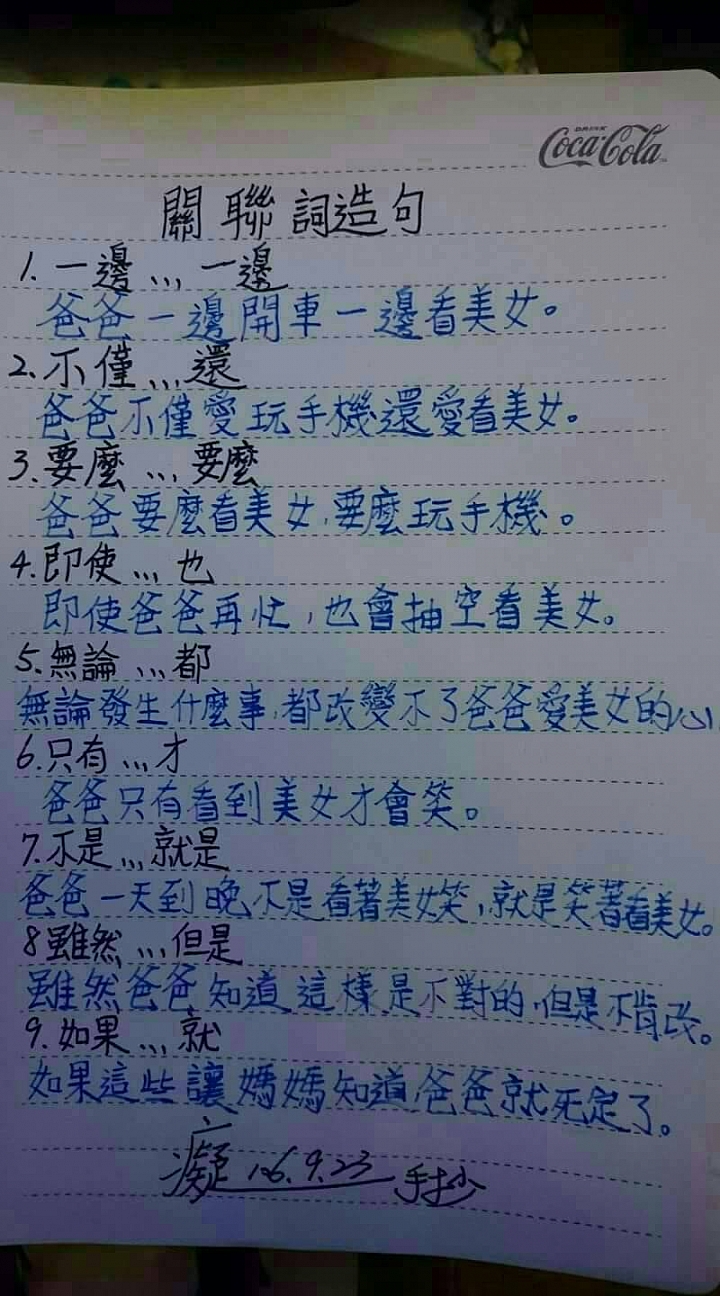 DRINK
Coca-Cola
關聯詞造句
1. 一邊... 一邊
爸爸一邊開車一邊看美女。
2. 不僅...還
爸爸不僅愛玩手機還愛看美女。
3. 要麼...要麼
爸爸要麼看美女,要麼玩手機。
4. 即使...也
即使爸爸再忙,也會抽空看美女。
5. 無論...都
無論發生什麼事,都改變不了爸爸愛美女的心
6. 只有...才
爸爸只有看到美女才會笑。
7. 不是...就是
爸爸一天到晚不是看著美女笑,就是笑著看美女。
8 雖然...但是
雖然爸爸知道這樣是不對的,但是不肯改。
9. 如果...就
如果這些讓媽媽知道,爸爸就死定了。
癡 106.9.23 手抄